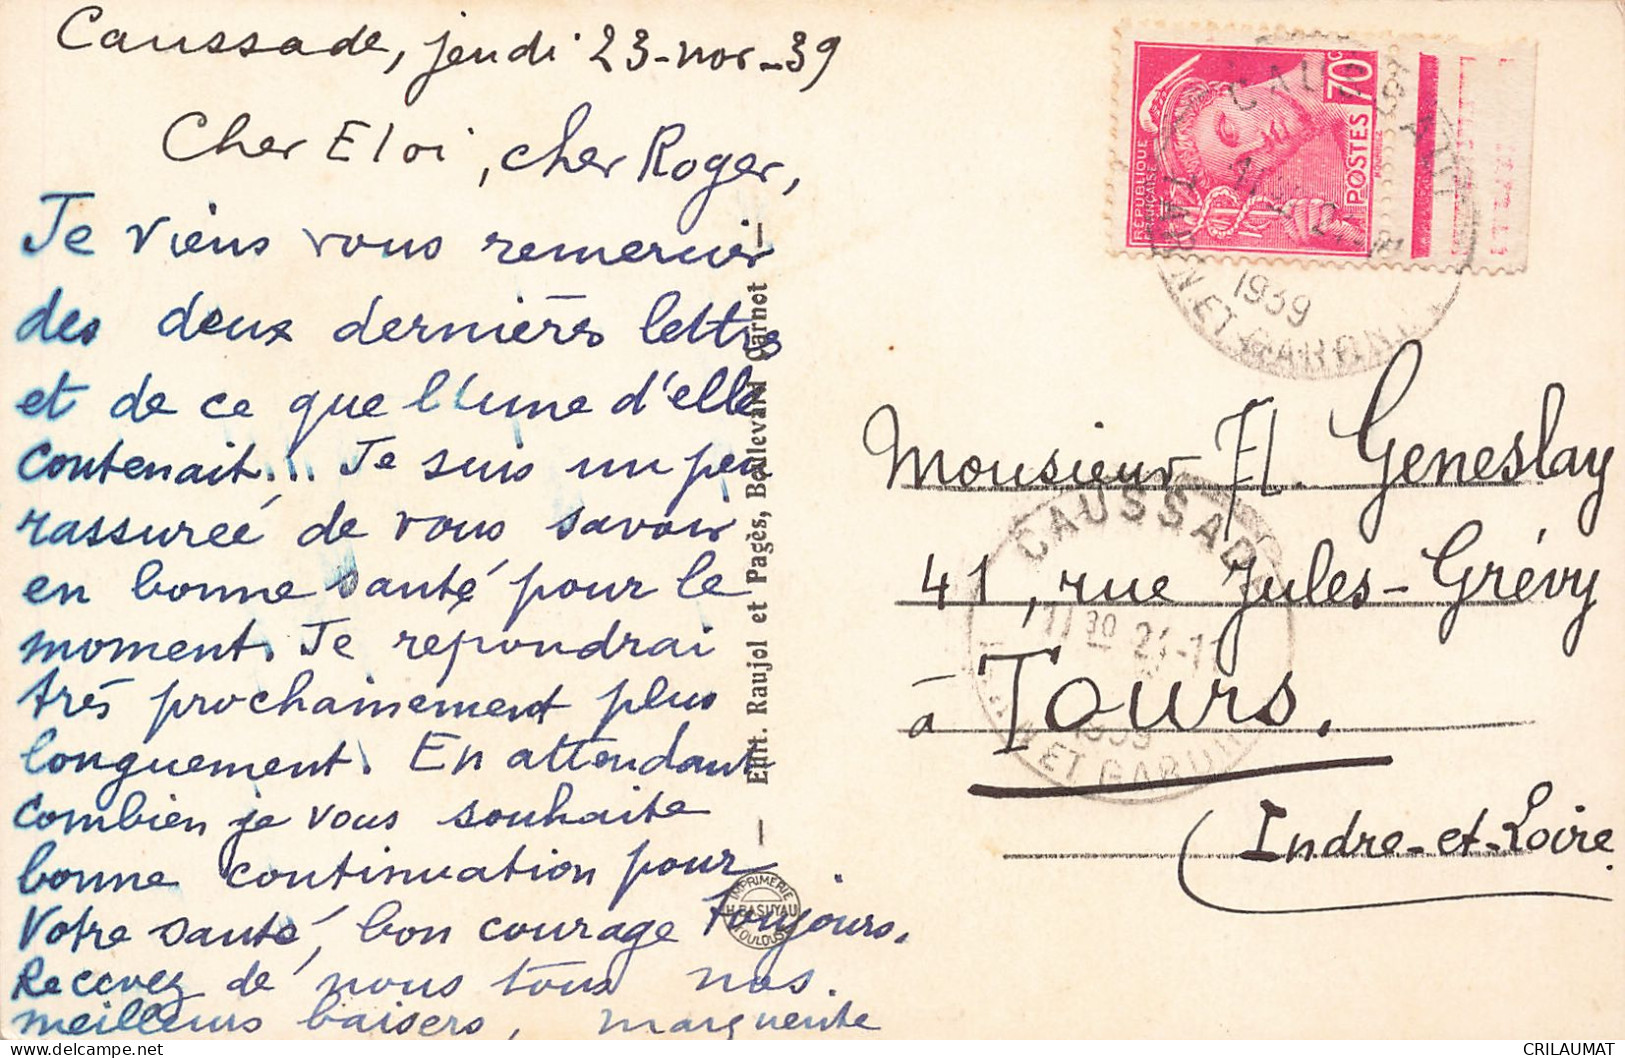 Caussade, jeudi 23-nov-39
Cher Eloi, cher Roger,
Je viens vous remercier
des deux dernières lettres
et de ce que l'une d'elle
contenait... Je suis un peu
rassurée de vous savoir
en bonne santé pour le
moment. Je repondrai
très prochainement plus
longuement. En attendant
combien je vous souhaite
bonne continuation pour
Votre santé, bon courage toujours.
Recevez de nous tous nos
meilleurs baisers, marguerite
Edit. Raujol et Pagès, Boulevard Carnot
IMPRIMERIE
H. BASUYAU
TOULOUSE
RÉPUBLIQUE
FRANÇAISE
POSTES
70c
1939
TARN-ET-GARONNE
Monsieur Fl. Geneslay
41, rue Jules-Grévy
à Tours.
(Indre-et-Loire
CAUSSADE
17 30 24-11
1939
TARN ET GARONNE
CRILAUMAT